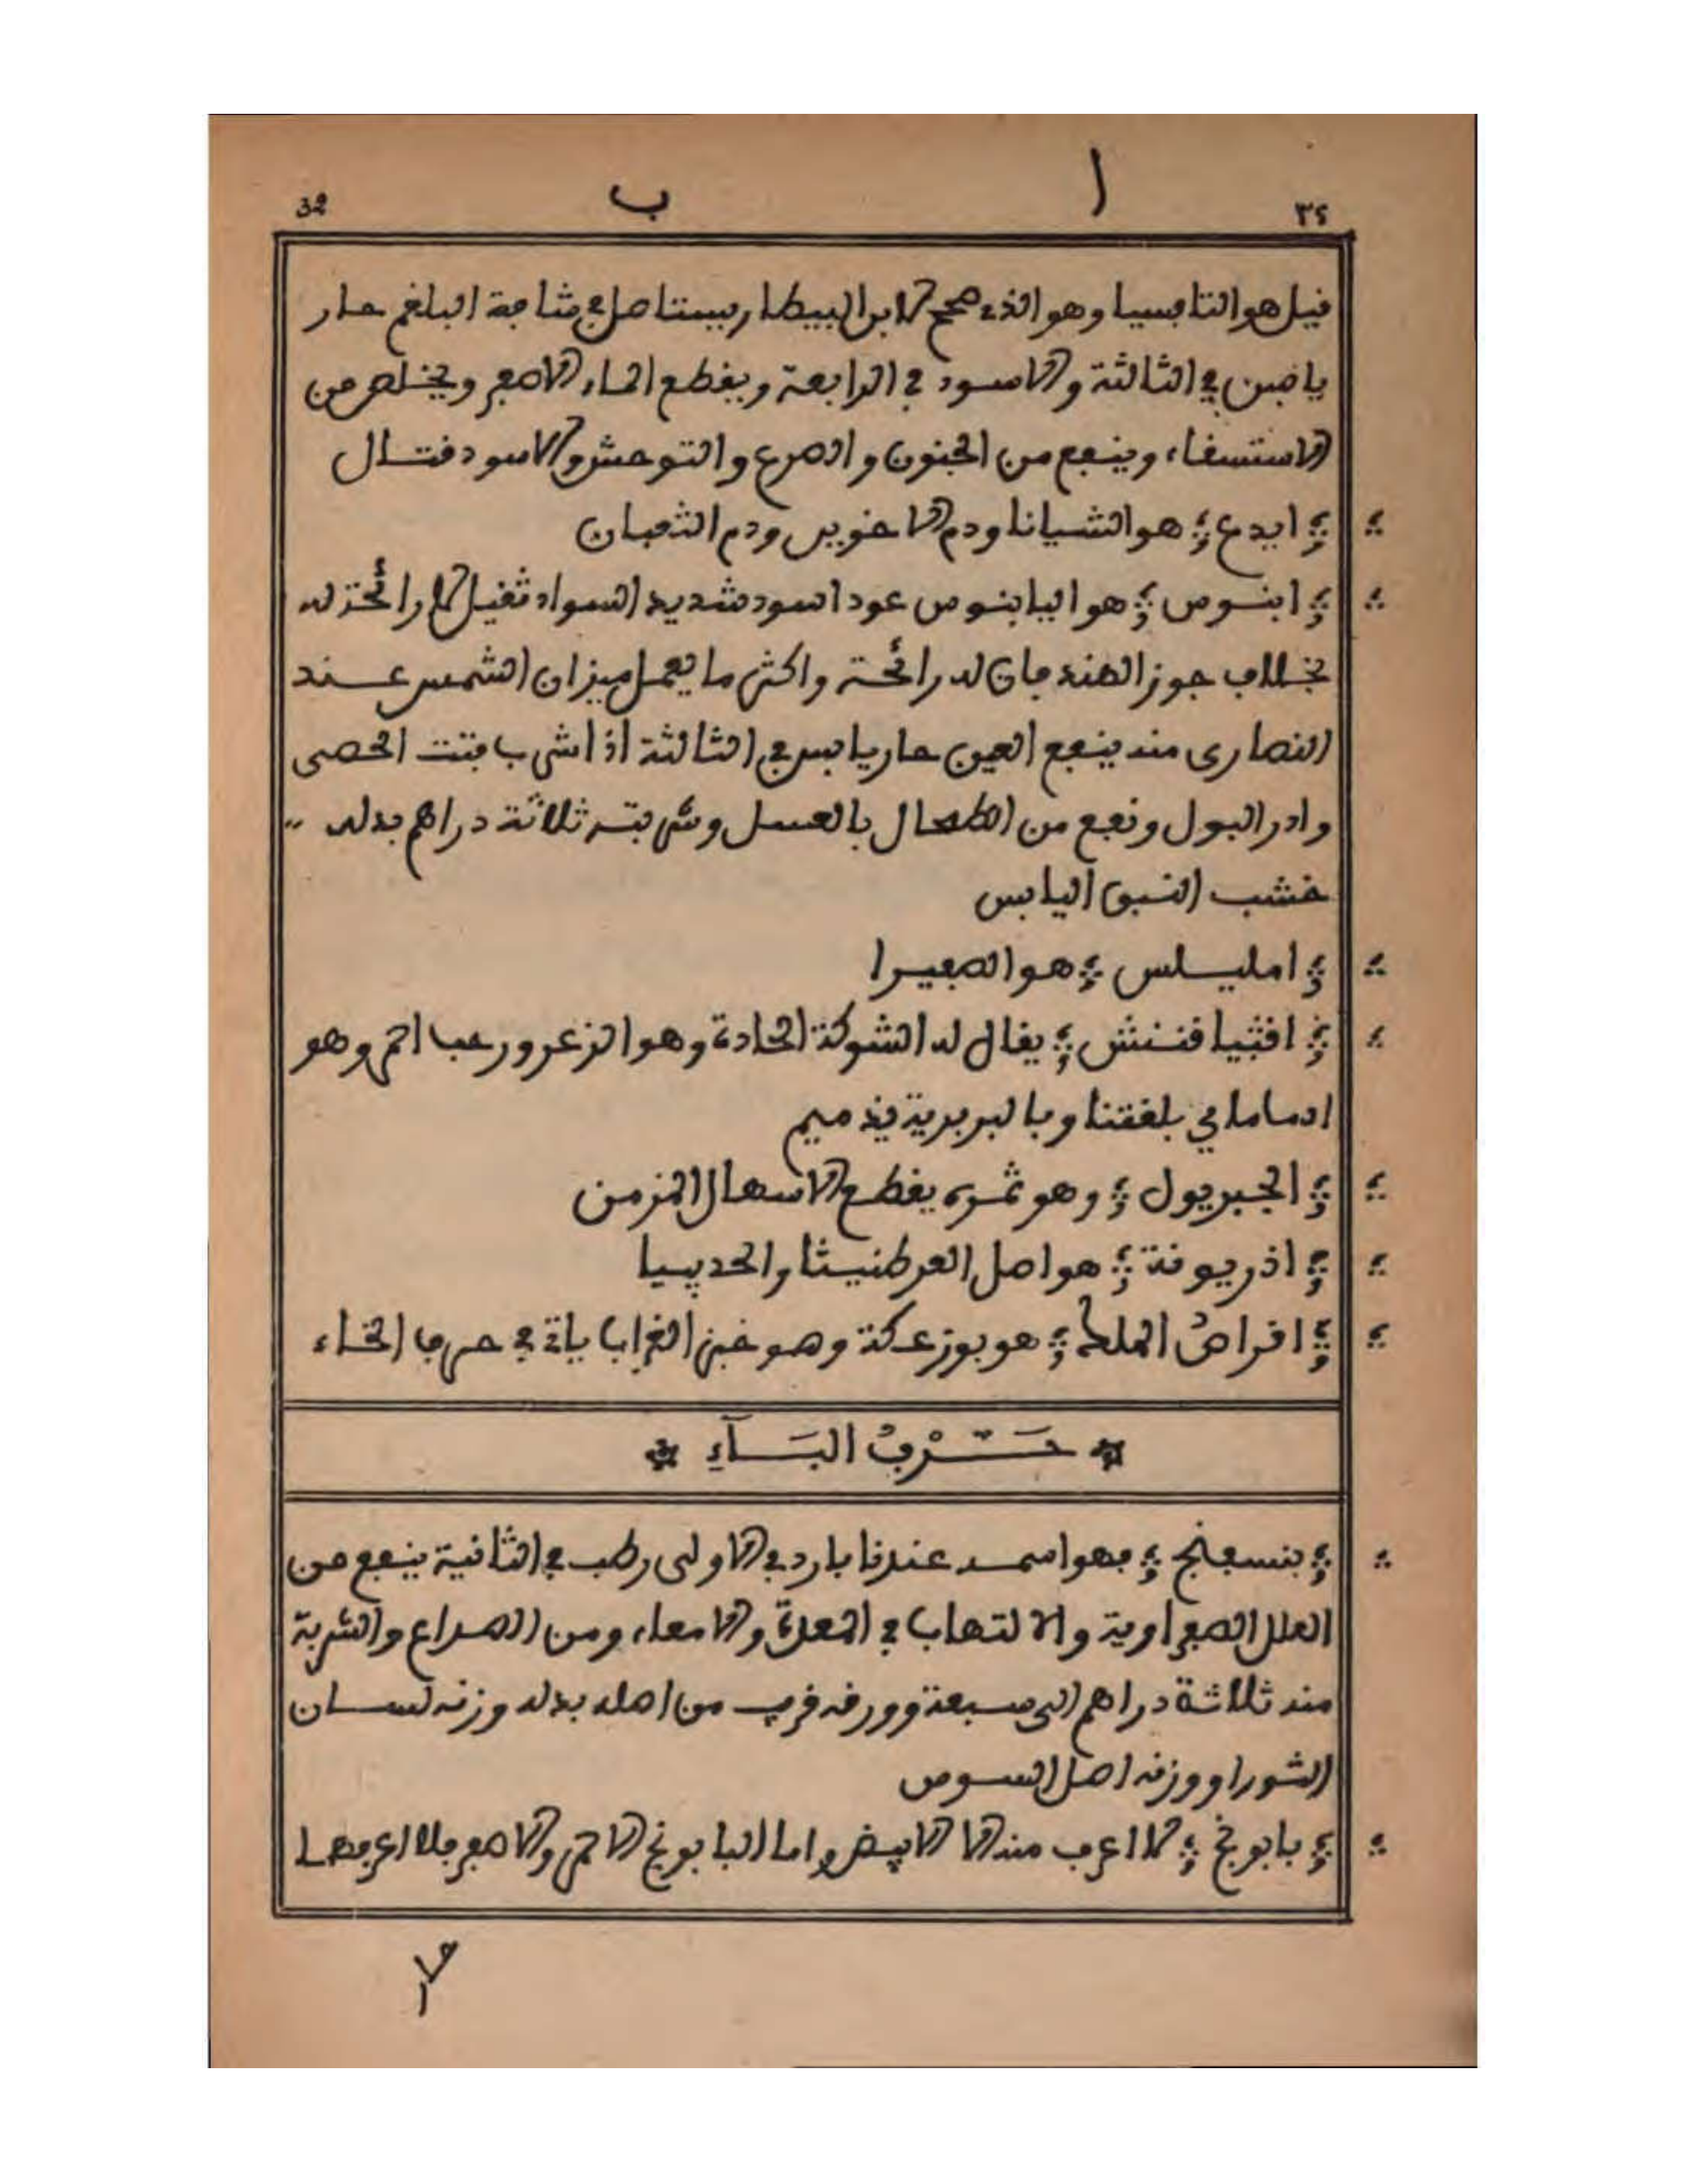 ٣٤ ا ب 32
قيل هو التافسيا وهو الذي صححه لابن البيطار يستاصل في شافة البلغم حار
يابس في الثالثة والاسود في الرابعة ويقطع الماء الاصفر ويخلص من
الاستسقاء وينفع من الجنون والصرع والتوحش والاسود قتال
ايدع هو الشيانا ودم الاخوين ودم الثعبان
ابنوس هو اليابنوس عود اسود شديد السواد ثقيل لا رائحة له
بخلاف جوز الهند فان له رائحة واكثر ما يعمل ميزان الشمس عند
النصارى منه ينفع العين حار يابس في الثالثة اذا شرب فتت الحصى
وادر البول ونفع من الطحال بالعسل وشربته ثلاثة دراهم بدله
خشب النبق اليابس
امليلس هو الصفيرا
اقثيا قنتش يقال له الشوكة الحادة وهو الزعرور حب احمر وهو
ادمامامي بلغتنا وبالبربرية فيذميم
الجبريول وهو ثمره يقطع الاسهال المزمن
اذريوقة هو اصل العرطنيثا والحديسيا
اقراص الملح هو بوزعكة وهو خبز الغراب ياتي في حرف الخاء
حَرْفُ البَآءِ
بنسفنج فهو اسمه عندنا بارد في الاولى رطب في الثانية ينفع من
العلل الصفراوية والالتهاب في المعدة والامعاء ومن الصداع والشربة
منه ثلاثة دراهم الى سبعة وورقه قريب من اصله بدله وزنه لسان
الثور او وزنه اصل السوس
بابونج لا اعرف منه الا الابيض واما البابونج الاحمر والاصفر فلا اعرفهما